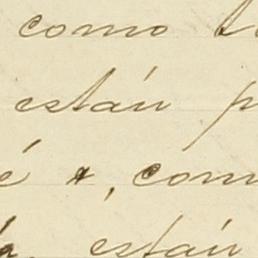 como
están p
é *, com
están